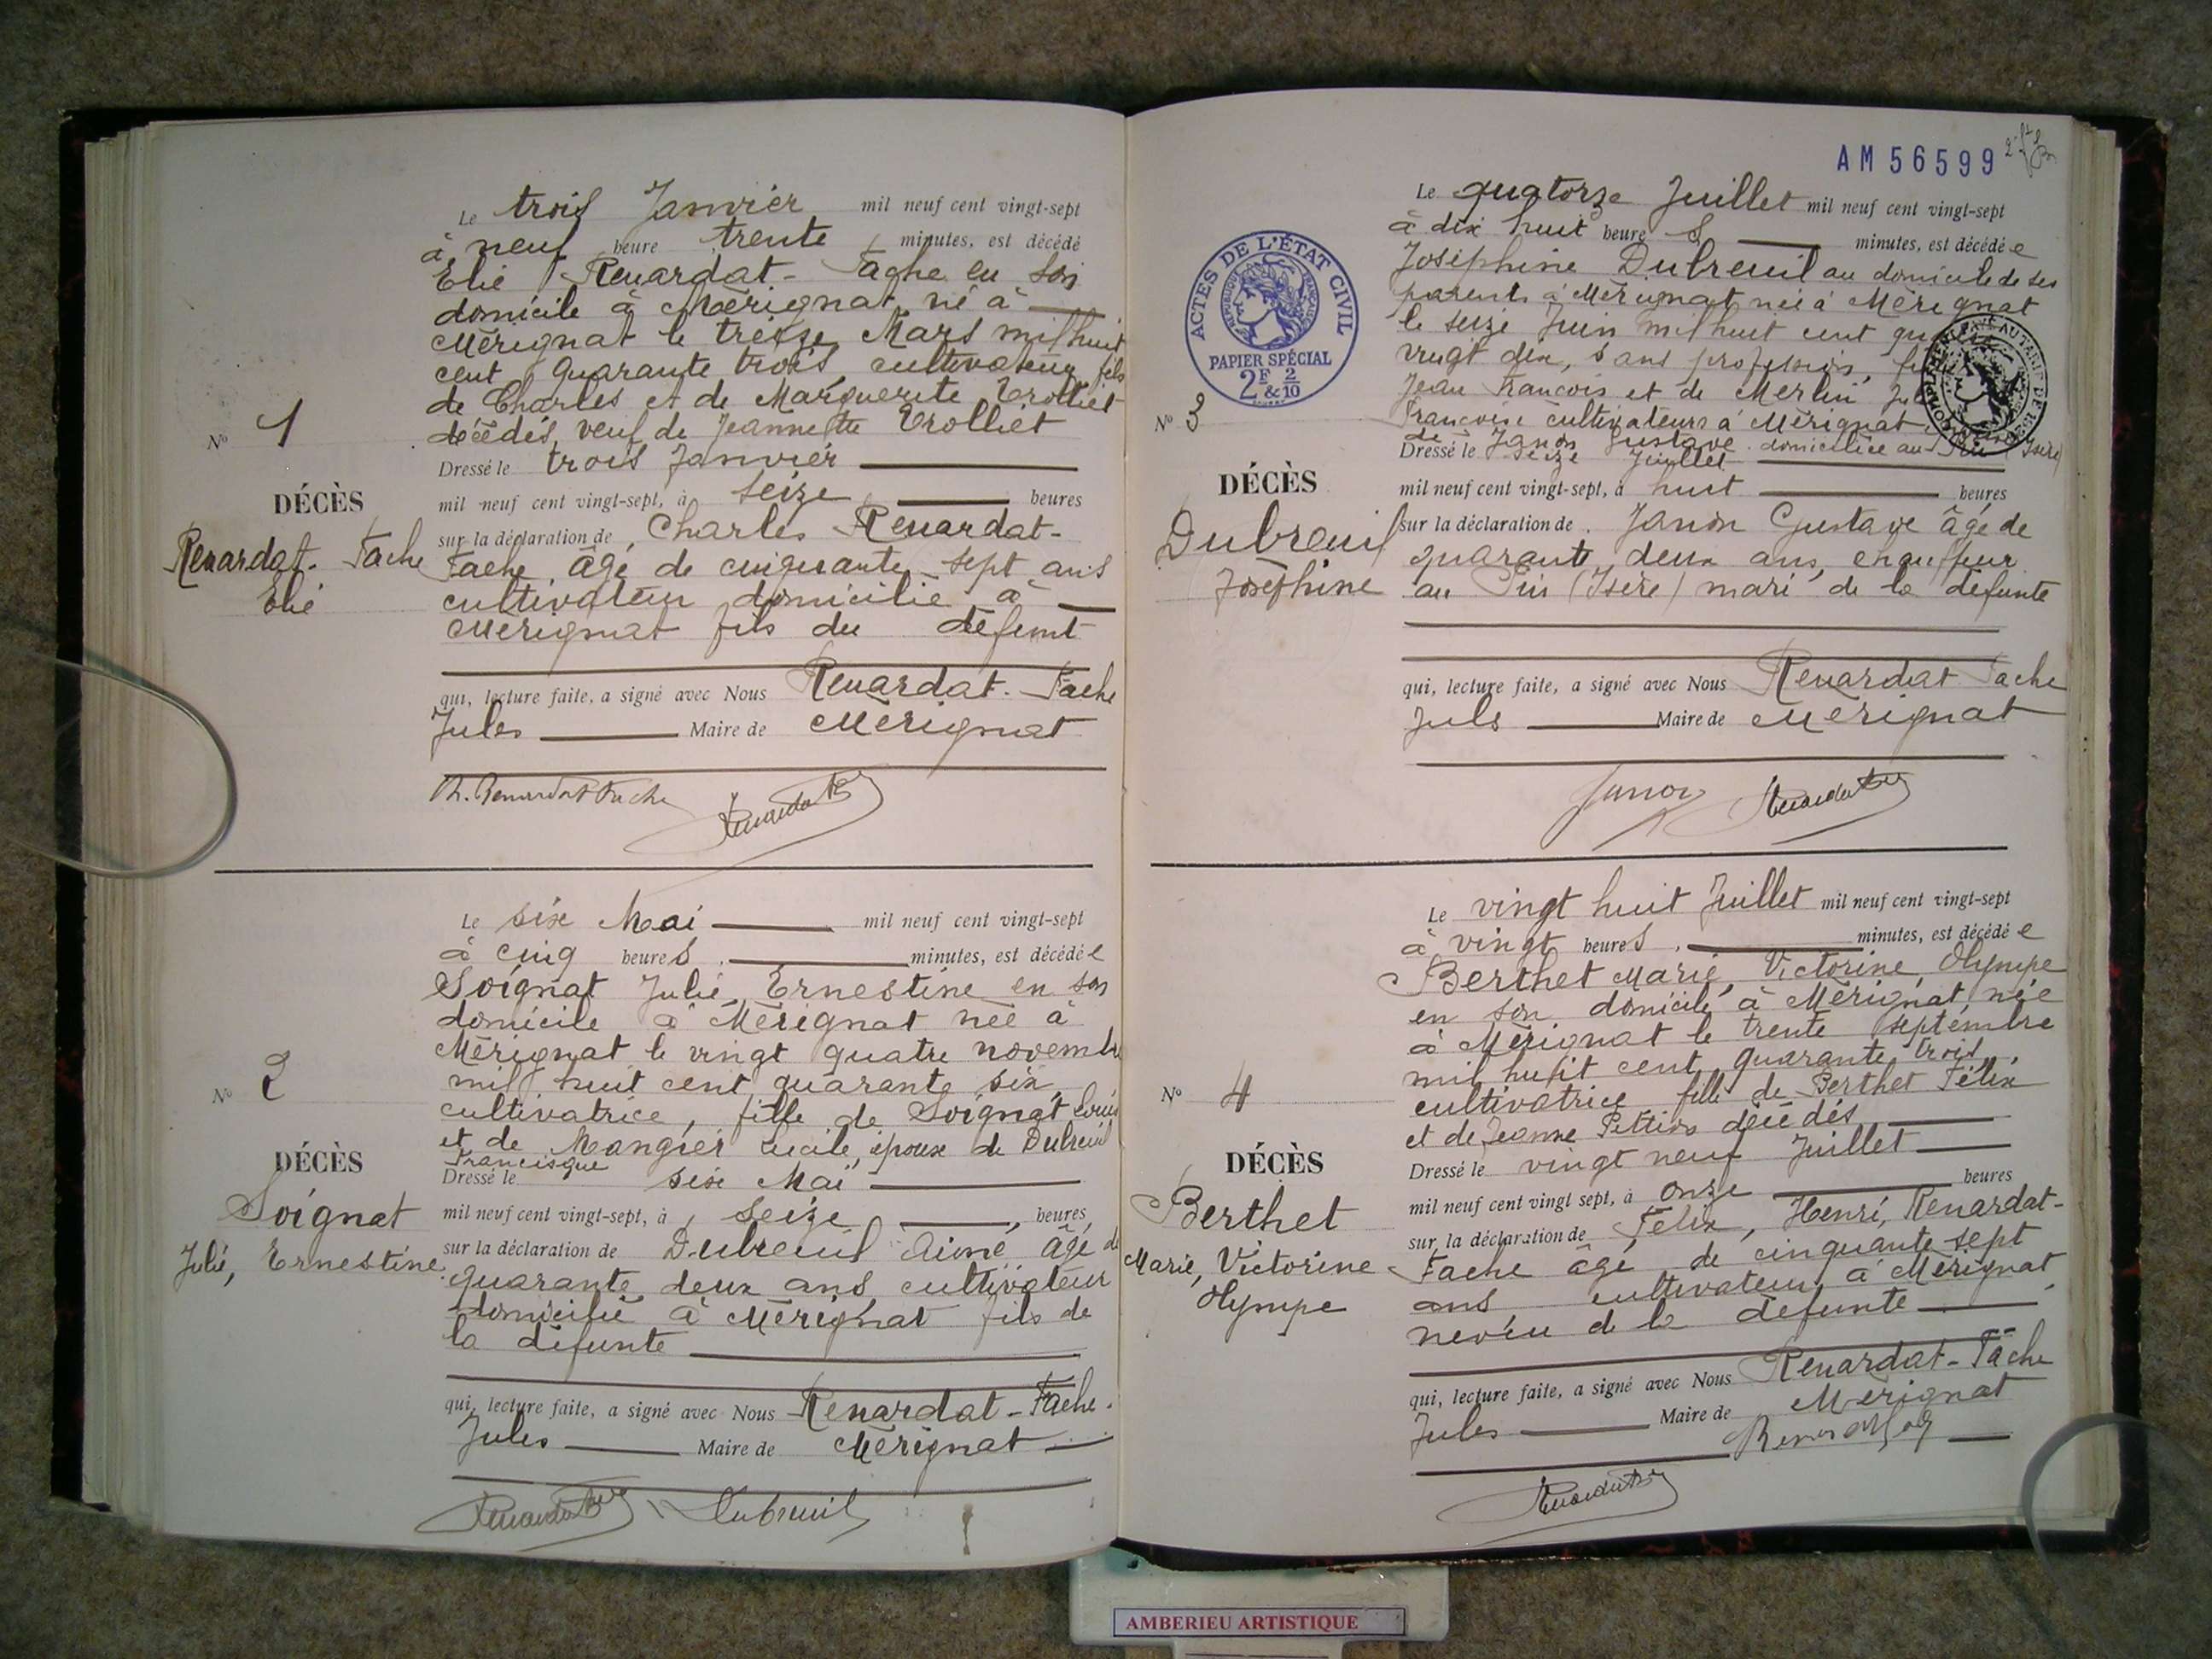 Le trois Janvier mil neuf cent vingt-sept
à neuf heure trente minutes, est décédé
Elie Renardat-Fache en son
domicile à Mérignat né à
Mérignat le treize Mars mil huit
cent quarante trois, cultivateur fils
de Charles et de Marguerite Trolliet
décédés, veuf de Jeannette Trolliet
Dressé le trois Janvier
mil neuf cent vingt-sept, à seize heures
sur la déclaration de Charles Renardat-
Fache, âgé de cinquante sept ans
cultivateur domicilié à
Mérignat fils du défunt
qui, lecture faite, a signé avec Nous Renardat-Fache
Jules Maire de Mérignat
Ch. Renardat Fache
No 1
DÉCÈS
Renardat-Fache
Elie
Le six Mai mil neuf cent vingt-sept
à cinq heures minutes, est décédée
Soignat Julie, Ernestine en son
domicile à Mérignat née à
Mérignat le vingt quatre novembre
mil huit cent quarante six
cultivatrice, fille de Soignat Louis
et de Mangier Lucile, épouse de Dubreuil
Francisque
Dressé le six Mai
mil neuf cent vingt-sept, à seize heures
sur la déclaration de Dubreuil Aimé âgé de
quarante deux ans cultivateur
domicilié à Mérignat fils de
la défunte
qui, lecture faite, a signé avec Nous Renardat-Fache
Jules Maire de Mérignat
Dubreuil
No 2
DÉCÈS
Soignat
Julie, Ernestine
AM 56599
Le quatorze Juillet mil neuf cent vingt-sept
à dix huit heures minutes, est décédée
Joséphine Dubreuil au domicile de ses
parents à Mérignat née à Mérignat
le seize Juin mil huit cent
vingt dix, sans profession,
Jean François et de Merlin
Françoise cultivateurs à Mérignat
de Janon Gustave domiciliée au Isère
Dressé le seize Juillet
mil neuf cent vingt-sept, à huit heures
sur la déclaration de Janon Gustave âgé de
quarante deux ans, chauffeur
au Pin (Isère) mari de la défunte
qui, lecture faite, a signé avec Nous Renardat Fache
Juls Maire de Mérignat
Janon
ACTES DE L'ÉTAT CIVIL
RÉPUBLIQUE FRANÇAISE
PAPIER SPÉCIAL
2F & 2/10
No 3
DÉCÈS
Dubreuil
Joséphine
Le vingt huit Juillet mil neuf cent vingt-sept
à vingt heures minutes, est décédée
Berthet Marie, Victorine, Olympe
en son domicile à Mérignat, née
à Mérignat le trente septembre
mil huit cent quarante trois,
cultivatrice fille de Berthet Félix
et de Jeanne décédés
Dressé le vingt neuf Juillet
mil neuf cent vingt sept, à onze heures
sur la déclaration de Felix, Henri, Renardat-
Fache âgé de cinquante sept
ans cultivateur à Mérignat
neveu de la défunte
qui, lecture faite, a signé avec Nous Renardat-Fache
Jules Maire de Mérignat
No 4
DÉCÈS
Berthet
Marie, Victorine
Olympe
AMBERIEU ARTISTIQUE